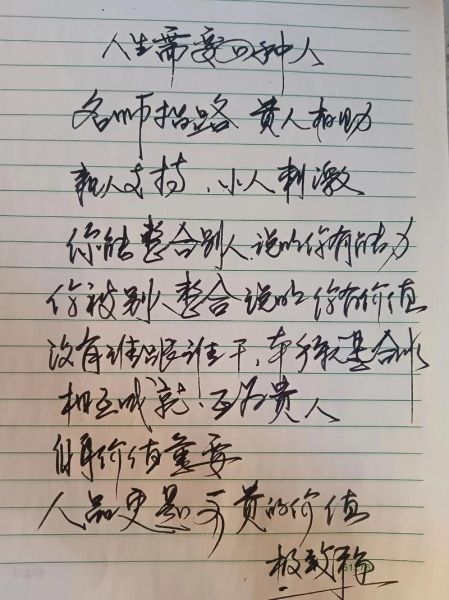 人生需要四种人
名师指路 贵人相助
亲人支持、小人刺激
你能整合别人,说明你有能力
你被别人整合 说明你有价值
没有谁跟谁干,
相互成就,互为贵人
自身价值重要
人品更是可贵的价值
极致